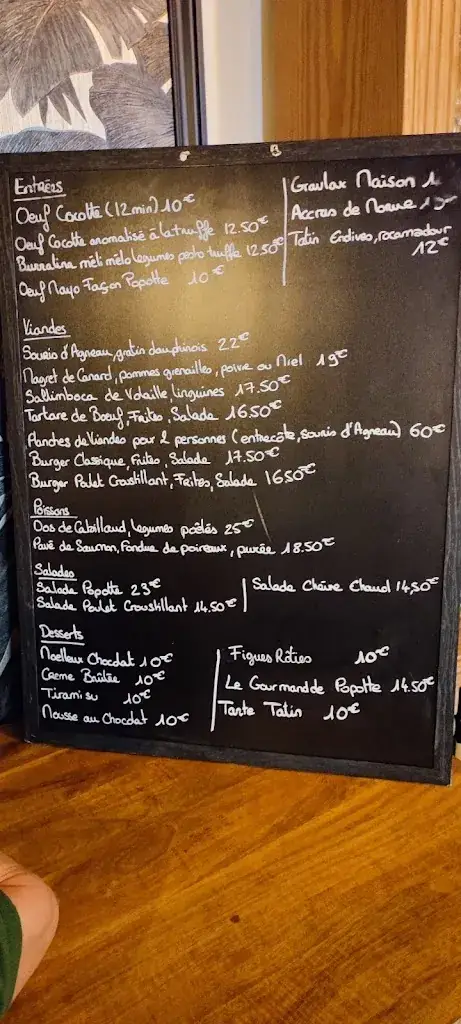 Entrées
Oeuf Cocotte (12min) 10€
Oeuf Cocotte aromatisé à la truffe 12.50€
Burratina méli mélo legumes pesto truffe 12.50€
Oeuf Mayo Façon Popotte 10€
Gravlax Maison
Accras de Morue
Tatin Endives, rocamadour
12€
Viandes
Souris d'Agneau, gratin dauphinois 22€
Magret de Canard, pommes grenailles, poivre ou Miel 19€
Saltimboca de Volaille, linguines 17.50€
Tartare de Boeuf, Frites, Salade 16.50€
Planches de Viandes pour 2 personnes (entrecôte, souris d'Agneau) 60€
Burger Classique, Frites, Salade 17.50€
Burger Poulet Croustillant, Frites, Salade 16.50€
Poissons
Dos de Cabillaud, legumes poêlés 25€
Pavé de Saumon, Fondue de poireaux, purée 18.50€
Salades
Salade Popotte 23€
Salade Poulet Croustillant 14.50€
Salade Chèvre Chaud 14,50€
Desserts
Moelleux Chocolat 10€
Creme Brûlée 10€
Tirami su 10€
Mousse au Chocolat 10€
Figues Rôties 10€
Le Gourmandde Popotte 14.50€
Tarte Tatin 10€